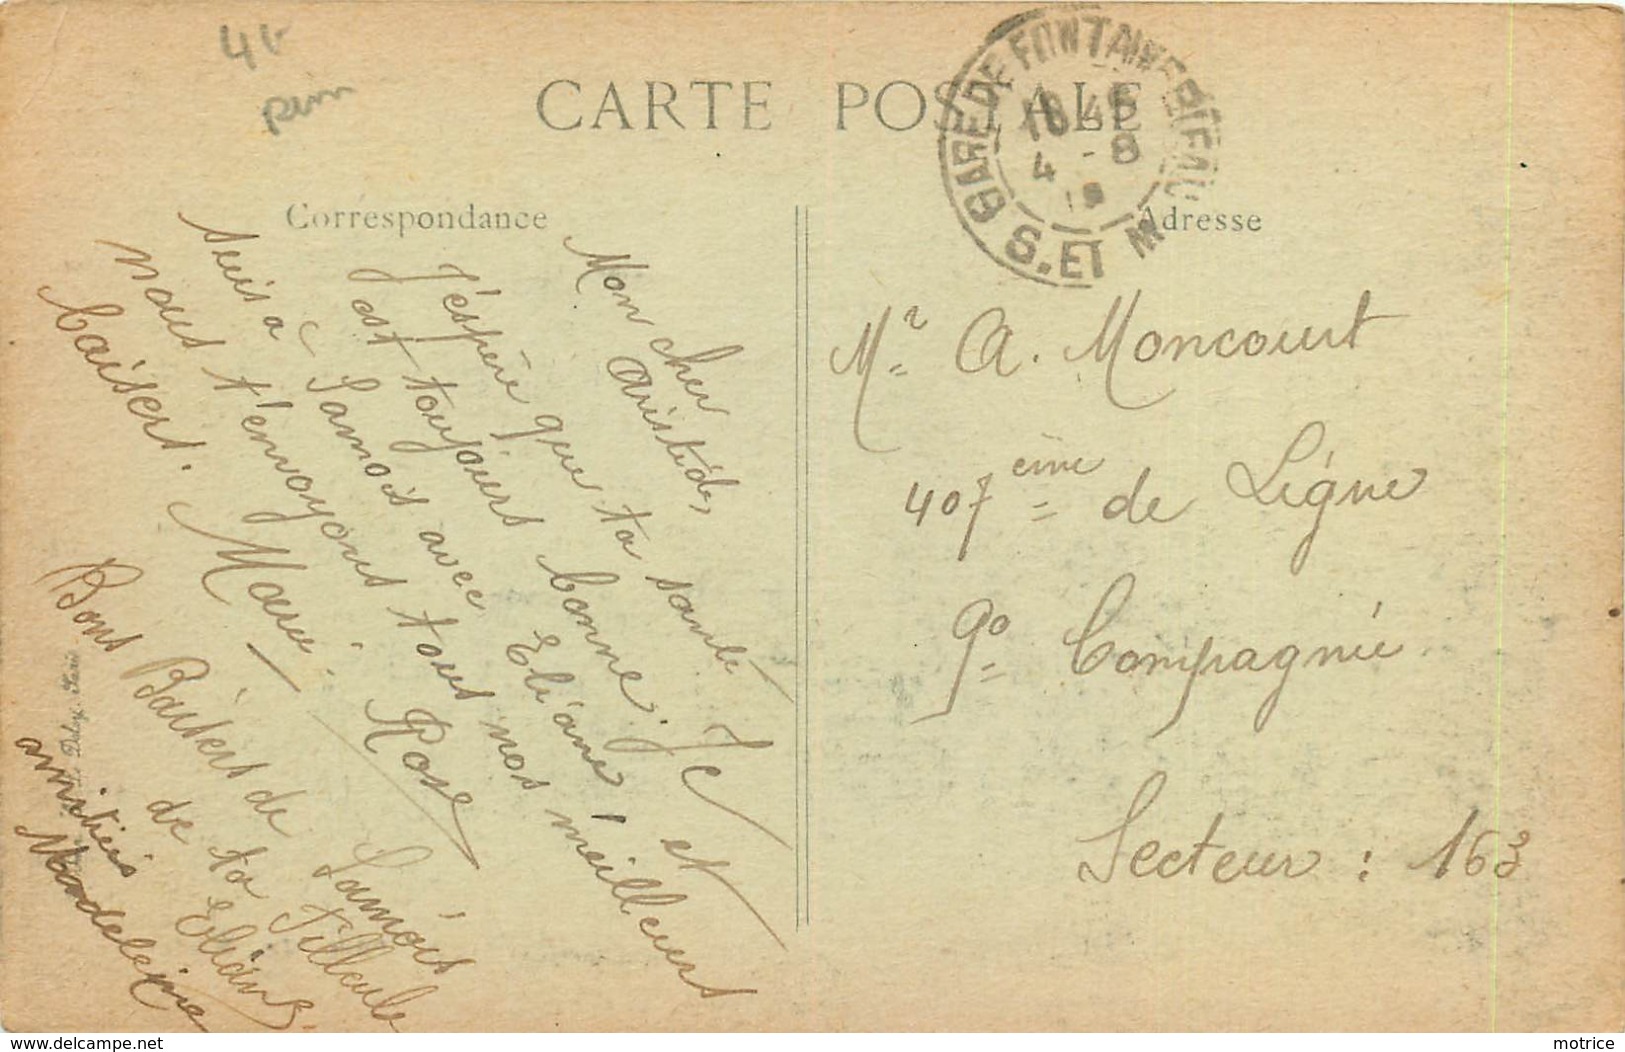 4f
CARTE POSTALE
GARE DE FONTAINEBLEAU
18 45
4 - 8
S. ET M
Correspondance
Adresse
Mon cher
Aristide,
J'espère que ta santé
est toujours bonne. Je
suis à Samois avec Eliane et
nous t'envoyons tous nos meilleurs
baisers.
Marie. Rose
Bons Baisers de Samois
de ta Filleule
Eliane
amitiés
Madeleine
Mr A. Moncourt
407ème de Ligne
9o Compagnie
Secteur : 163
www.delcampe.net
motrice